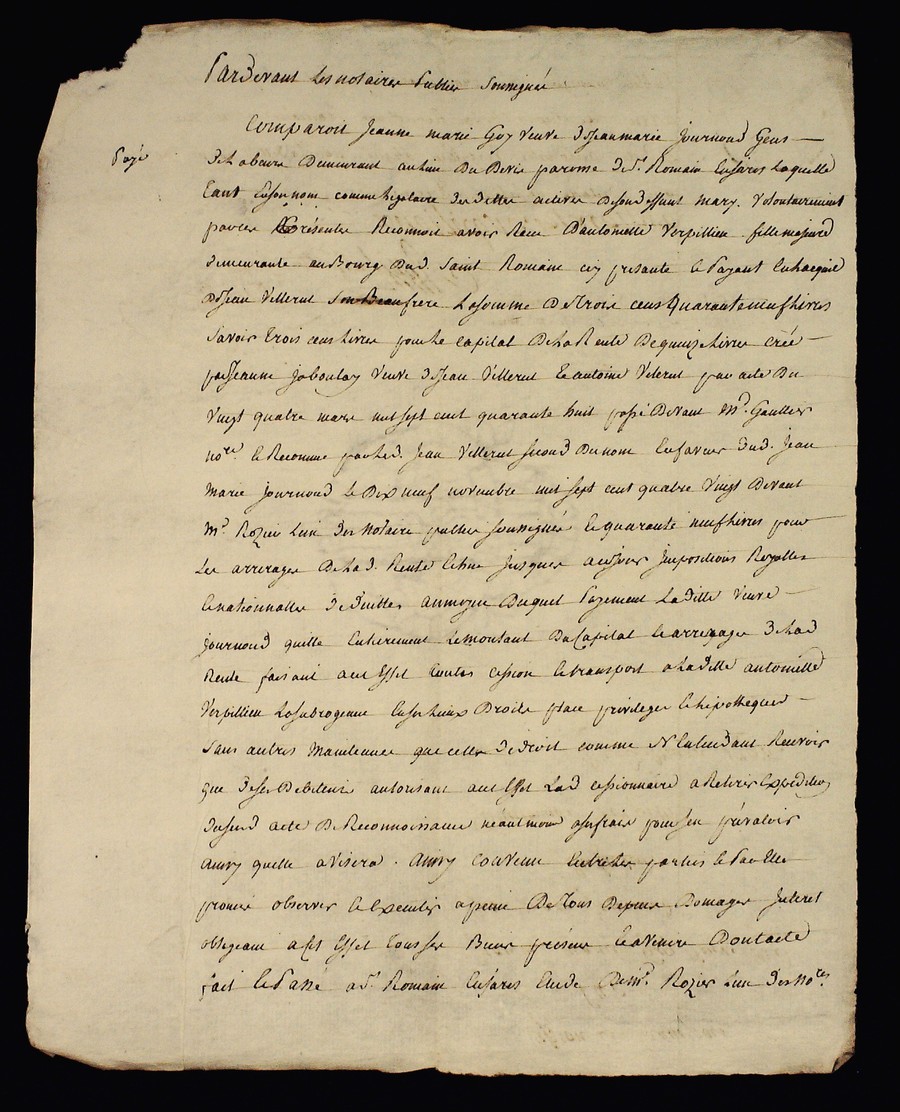 Pardevant Les notaires Publics Soussignés
Comparoit Jeanne marie Guy Veuve de Jean marie Journoud Gens
Payé
de Labeure Demeurant au lieu Du Devis paroisse de St. Romain En Jarés Laquelle
Eant En son nom comme legataire des dettes actives de son deffunt mary. Volontairement
par ces présentes Reconnoit avoir Recu D'antoinette Verpillieu fille majeure
demeurante au Bourg Dud. Saint Romain icy présante et Payant En Lacquit
de Jean Villerut Son Beaufrere La somme De Trois cens Quarante neuf livres
Savoir Trois cens livres pour Le capital De La Rente De quinze livres créé
par Jeanne Jaboulay Veuve de Jean Villerut Et antoine Vilerut par acte Du
Vingt quatre mars mil sept cent quarante huit passé Devant Me. Gaultier
nore. et Reconnue par Led. Jean Villerut second Du nom En faveur Dud. Jean
Marie Journoud Le Dix neuf novembre mil sept cent quatre Vingt Devant
Me Rozier L'un des Notaires publics soussignés Et quarante neuf livres pour
Les arrerages De Lad. Rente Echue jusques a ce jour Impositions Royalles
Et nationnalles Deduittes au moyen Duquel Payement La ditte Veuve
Journoud quitte Entièrement Le montant Du Capital et arrerages de Lad
Rente faisant a cet Effet toutes cession et transport a La ditte antoinette
Verpillieu La subrogeant En ses Lieux Droits place privileges et hipotheques
Sans autres Maintenues que celles de droit comme N'Entendant Recevoir
que de ses Debiteurs autorisant a cet Effet Lad cessionnaire a Retirer Expedition
Dususd acte De Reconnoissance néantmoins a ses frais pour s'en prévaloir
Ainsy quelle avisera. Ainsy convenu Entre Les parties et Par Elles
promis observer et Executer a peine De Tous Depens Domages Interet
obligeant a cet Effet Tous ses Biens présens Et avenir Dont acte
fait Et Passé a St. Romain En Jarés Etude De Me. Rozier L'un des Nores.